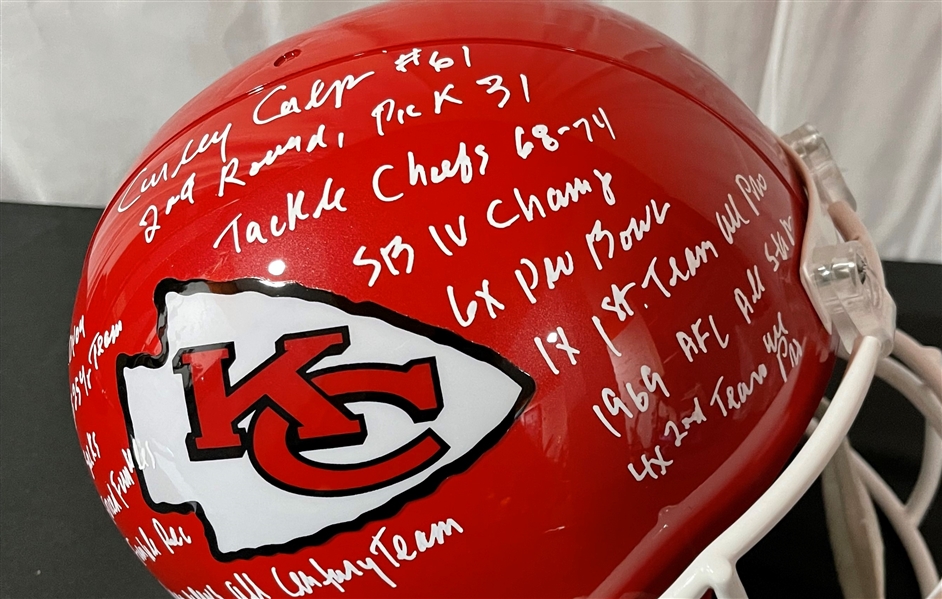 Curley Culp #61
2nd Round, Pick 31
Tackle Chiefs 68-74
SB IV Champ
6X Pro Bowl
1X 1st. Team All Pro
1969 AFL All Star
4X 2nd Team
75 Yr Team
KC
All Century Team